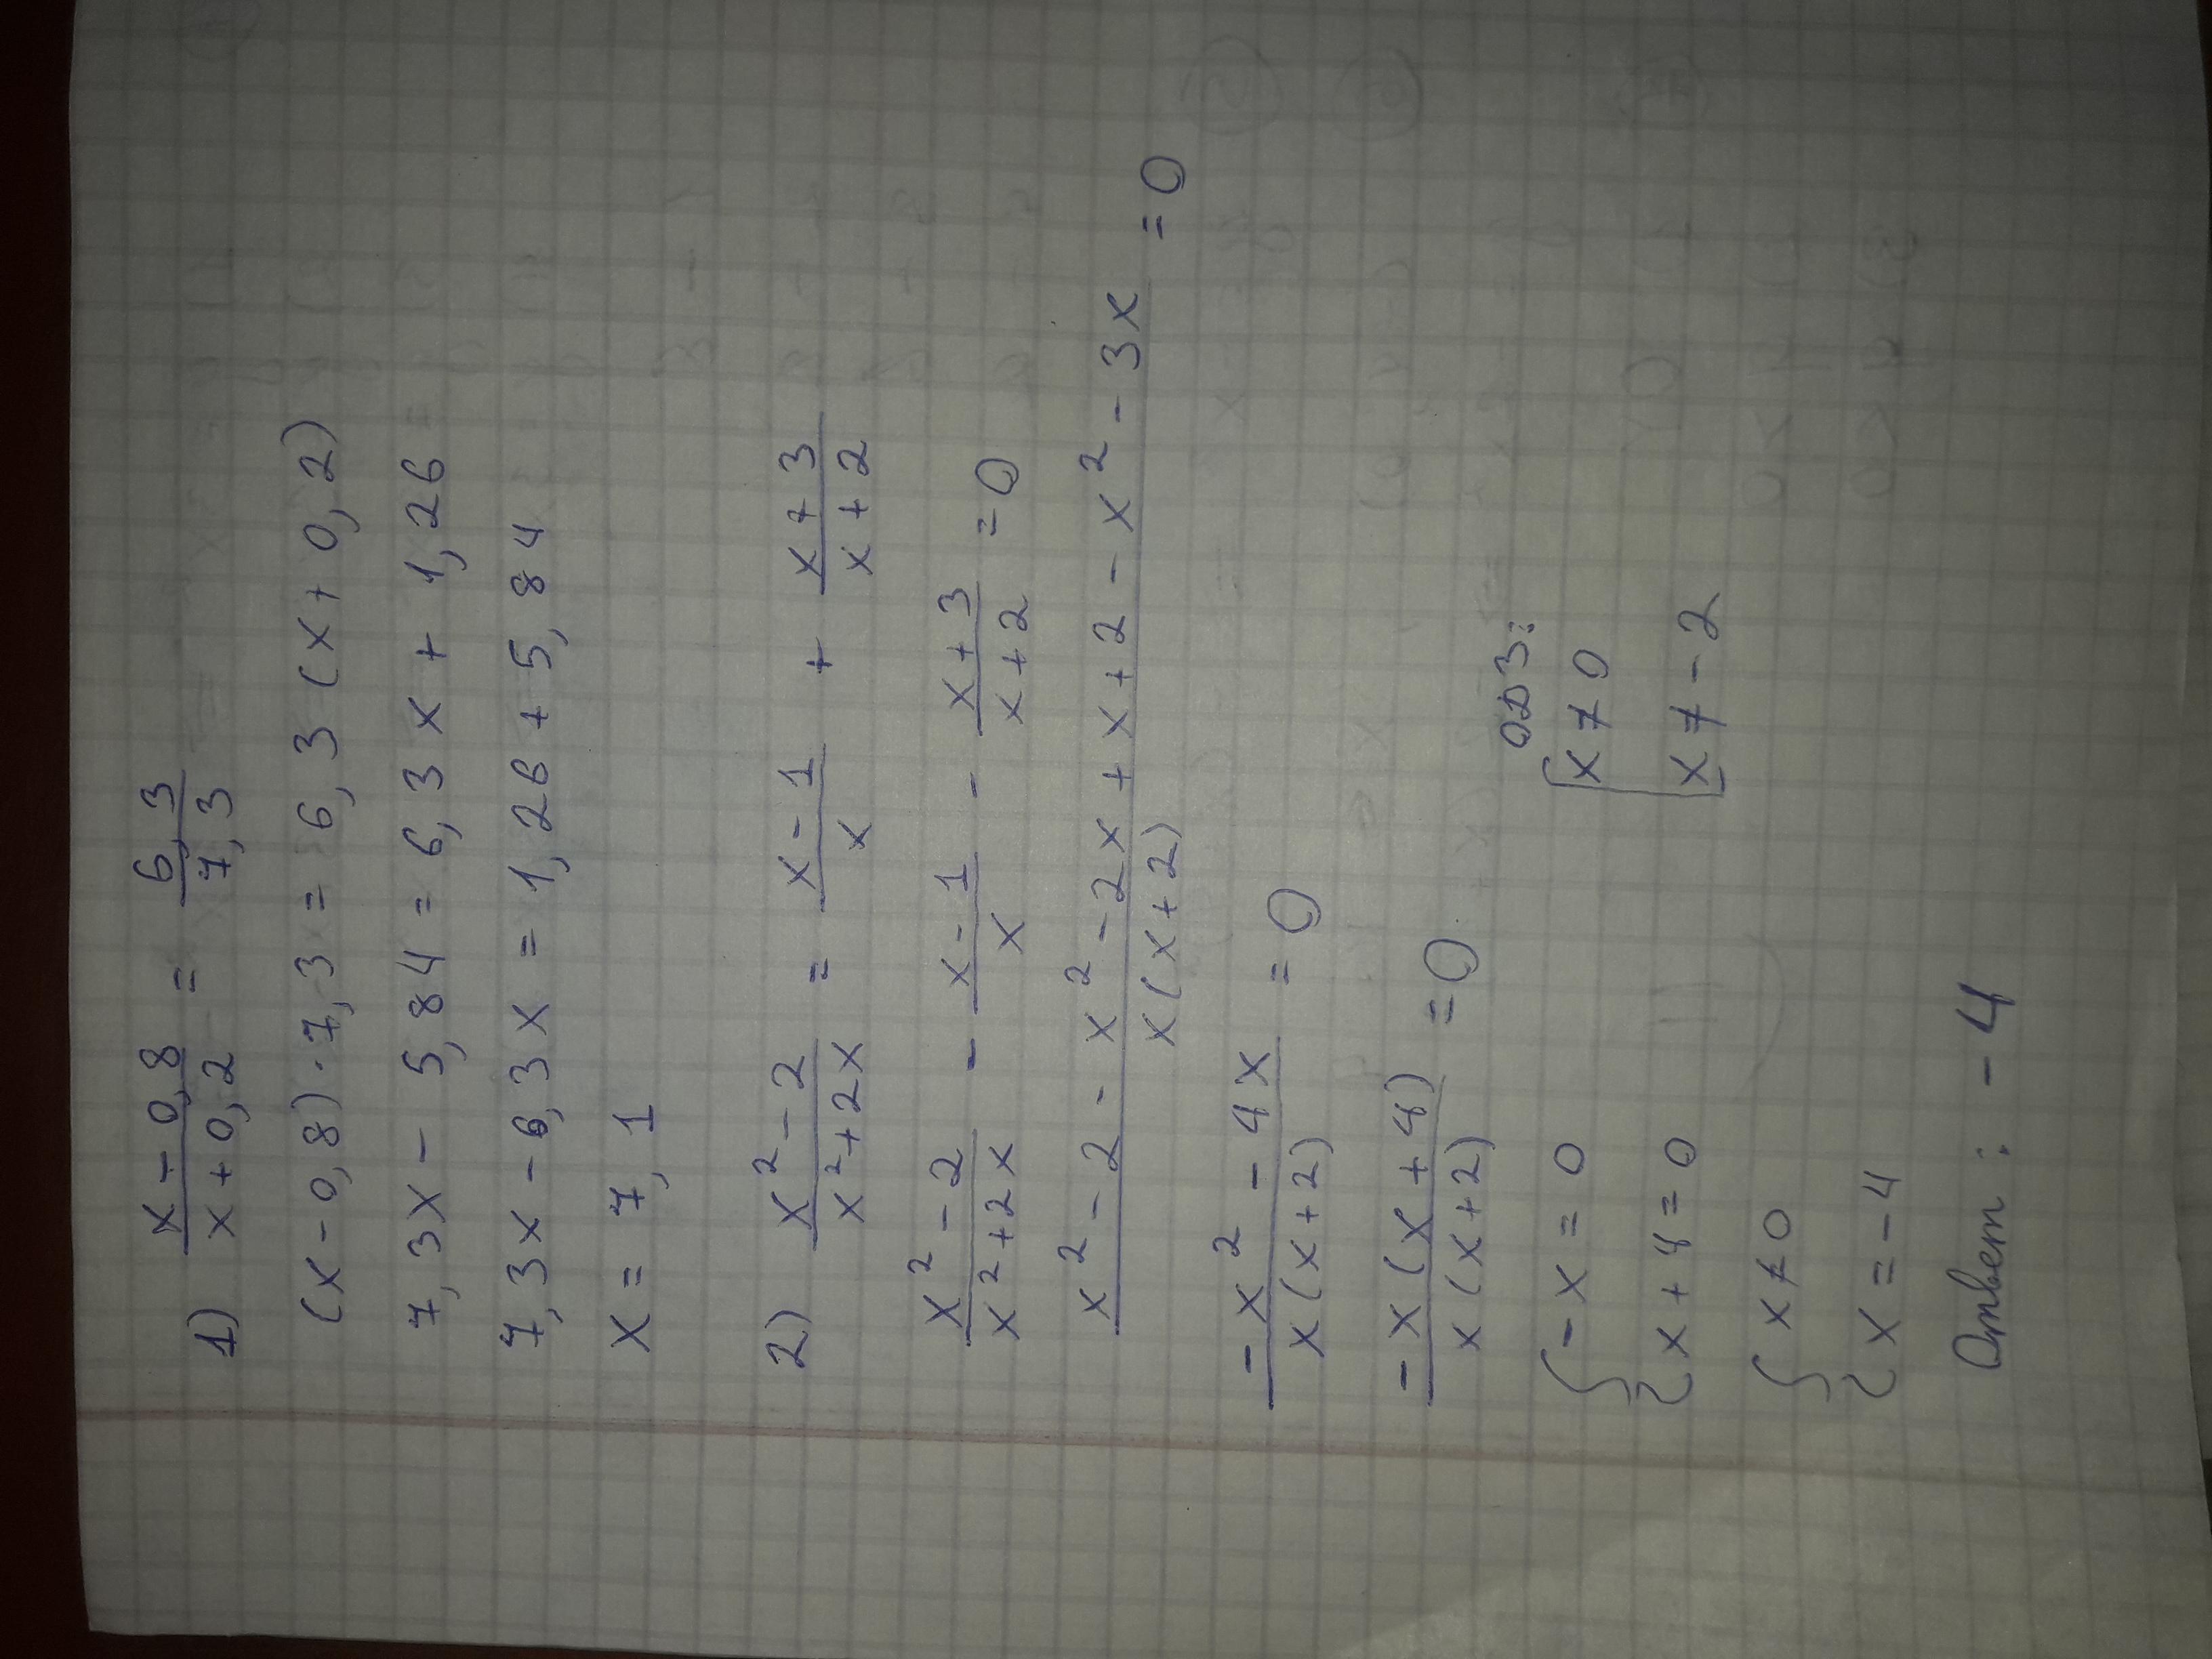 1) (x - 0,8)/(x + 0,2) = 6,3/7,3
(x - 0,8) · 7,3 = 6,3 (x + 0,2)
7,3x - 5,84 = 6,3x + 1,26
7,3x - 6,3x = 1,26 + 5,84
x = 7,1
2) (x² - 2)/(x² + 2x) = (x - 1)/x + (x + 3)/(x + 2)
(x² - 2)/(x² + 2x) - (x - 1)/x - (x + 3)/(x + 2) = 0
(x² - 2 - x² - 2x + x + 2 - x² - 3x)/(x(x + 2)) = 0
(-x² - 4x)/(x(x + 2)) = 0
(-x(x + 4))/(x(x + 2)) = 0
ОДЗ:
{ -x = 0 [ x ≠ 0
{ x + 4 = 0 [ x ≠ -2
{ x ≠ 0
{ x = -4
Ответ: -4